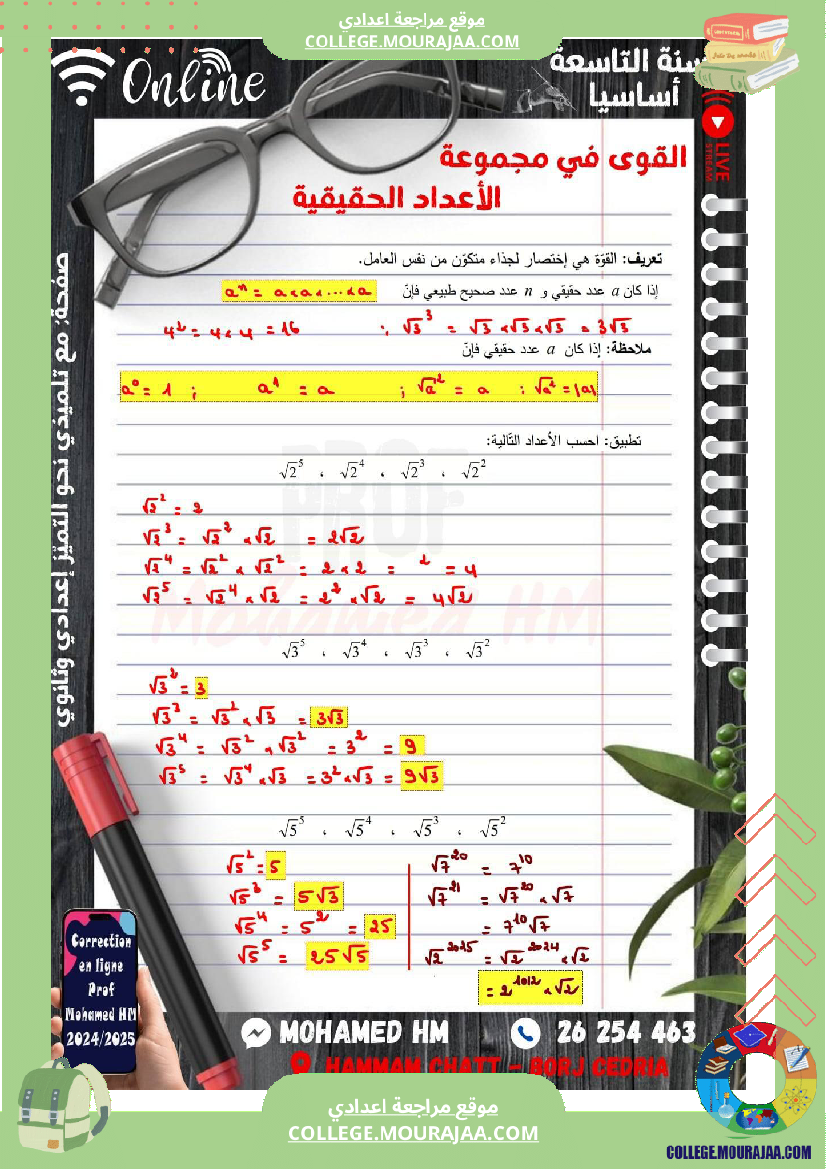 موقع مراجعة اعدادي
COLLEGE.MOURAJAA.COM
Online
سنة التاسعة
أساسيا
LIVE
STREAM
القوى في مجموعة
الأعداد الحقيقية
صفحة: مع تلميذي نحو التميّز إعدادي وثانوي
تعريف: القوّة هي إختصار لجذاء متكوّن من نفس العامل.
إذا كان a عدد حقيقي و n عدد صحيح طبيعي فإنّ aⁿ = a×a×...×a
4² = 4×4 = 16 ; √3³ = √3×√3×√3 = 3√3
ملاحظة: إذا كان a عدد حقيقي فإنّ
a⁰ = 1 ; a¹ = a ; √a² = a ; √a² = |a|
تطبيق: احسب الأعداد التّالية:
√2⁵ ، √2⁴ ، √2³ ، √2²
√2² = 2
√2³ = √2² × √2 = 2√2
√2⁴ = √2² × √2² = 2×2 = ² = 4
√2⁵ = √2⁴ × √2 = 2² × √2 = 4√2
PROF
Mohamed HM
√3⁵ ، √3⁴ ، √3³ ، √3²
√3² = 3
√3³ = √3² × √3 = 3√3
√3⁴ = √3² × √3² = 3² = 9
√3⁵ = √3⁴ × √3 = 3² × √3 = 9√3
√5⁵ ، √5⁴ ، √5³ ، √5²
√5² = 5
√5³ = 5√3
√5⁴ = 5² = 25
√5⁵ = 25√5
√7²⁰ = 7¹⁰
√7²¹ = √7²⁰ × √7
= 7¹⁰√7
√2²⁰²⁵ = √2²⁰²⁴ × √2
= 2¹⁰¹² × √2
Correction
en ligne
Prof
Mohamed HM
2024/2025
MOHAMED HM 26 254 463
HAMMAM CHATT - BORJ CEDRIA
موقع مراجعة اعدادي
COLLEGE.MOURAJAA.COM
COLLEGE.MOURAJAA.COM